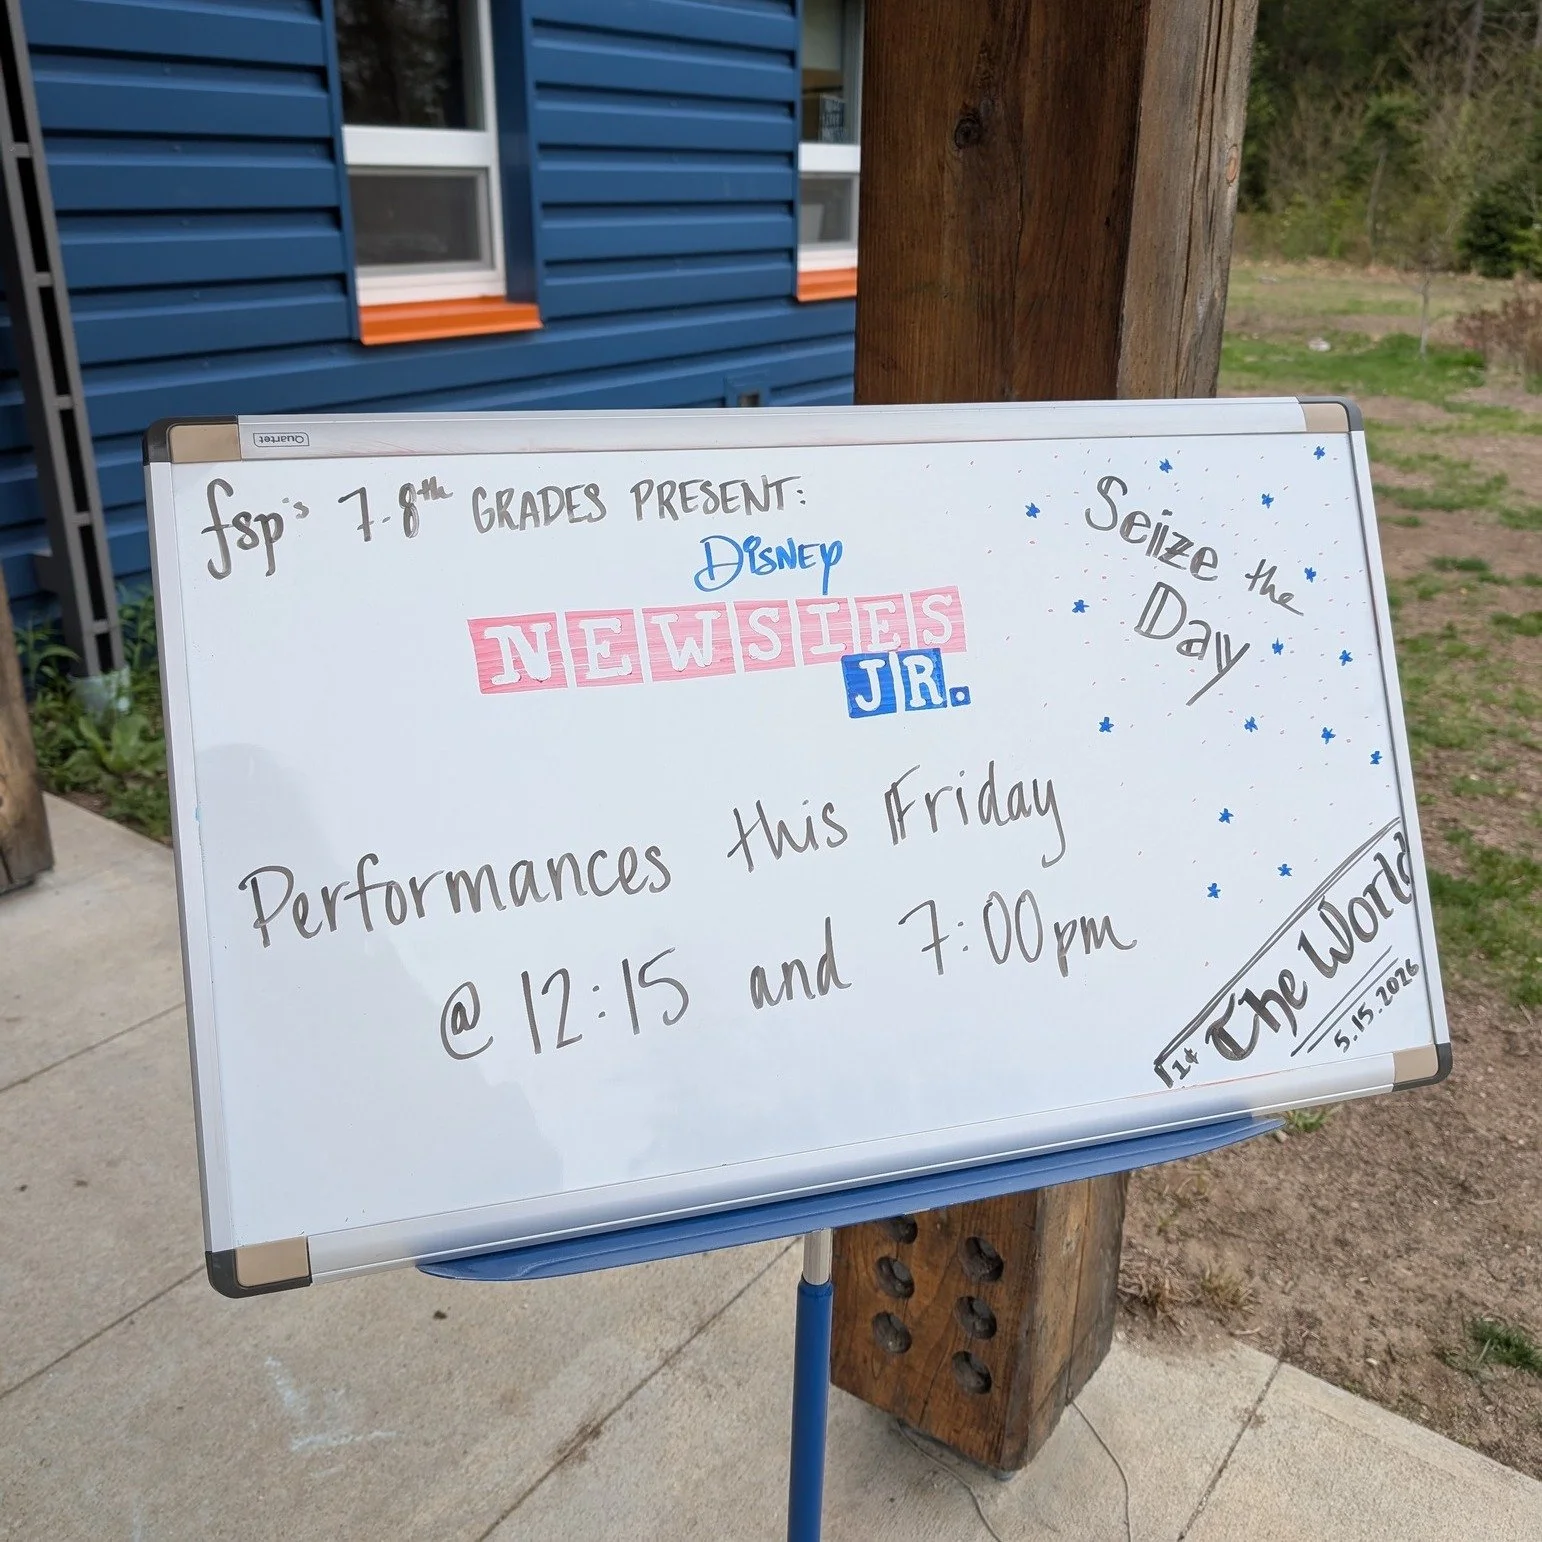 Quartet
fsp's 7-8th GRADES PRESENT:
DISNEY
NEWSIES
JR.
Seize the
Day
Performances this Friday
@ 12:15 and 7:00pm
1¢ The World
5.15.2026